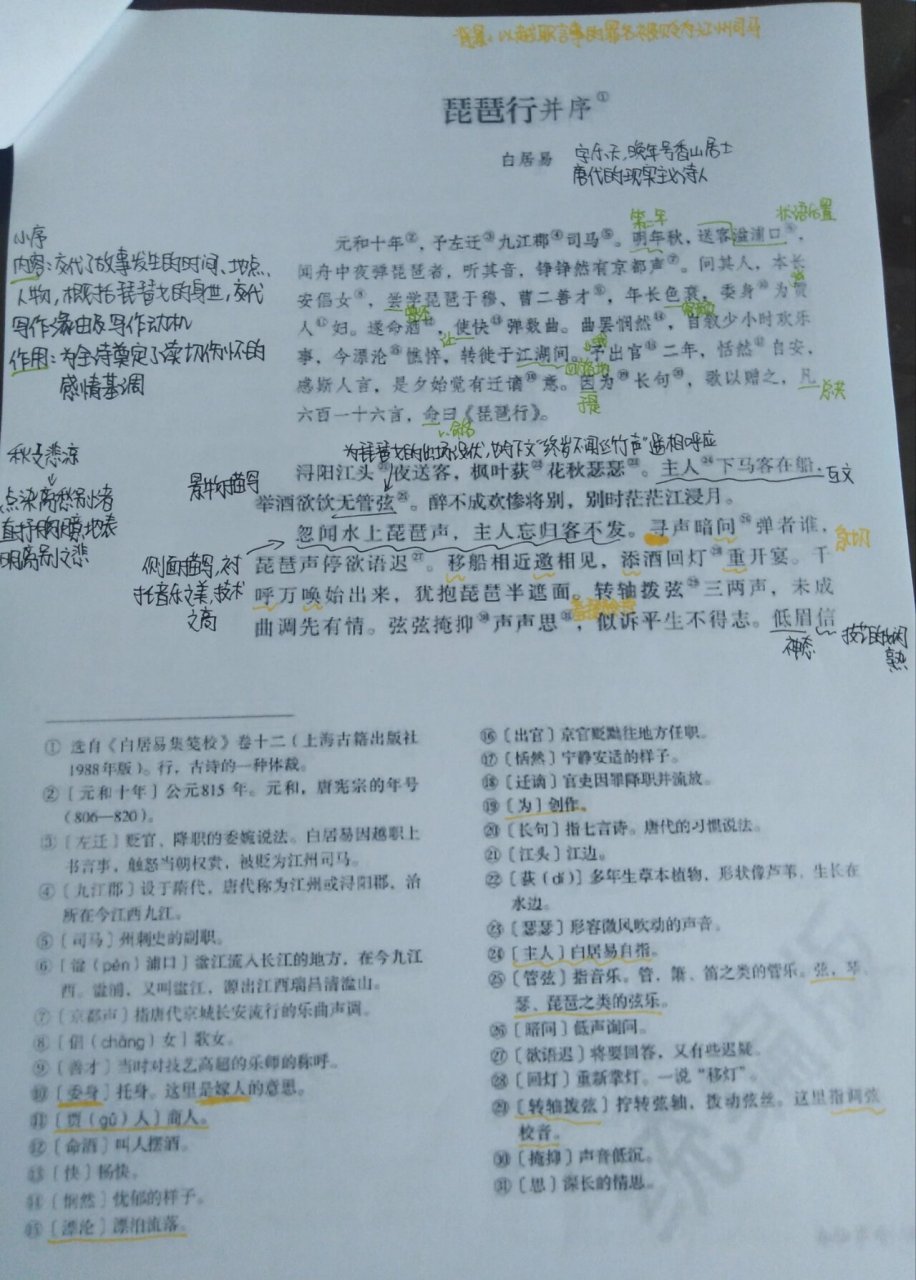 背景：以越职言事的罪名被贬为江州司马
琵琶行并序①
白居易
字乐天，晚年号香山居士
唐代的现实主义诗人
第二年
状语后置
元和十年②，予左迁③九江郡④司马⑤。明年秋，送客湓浦口⑥，
闻舟中夜弹琵琶者，听其音，铮铮然有京都声⑦。问其人，本长
安倡女⑧，尝学琵琶于穆、曹二善才⑨，年长色衰，委身⑩为贾
人⑪妇。遂命酒⑫，使快⑬弹数曲。曲罢悯然⑭，自叙少小时欢乐
事，今漂沦⑮憔悴，转徙于江湖间。予出官⑯二年，恬然⑰自安，
感斯人言，是夕始觉有迁谪⑱意。因为⑲长句⑳，歌以赠之，凡
六百一十六言，命曰《琵琶行》。
曾经
容貌
让
于是
总共
命名
小序
内容：交代了故事发生的时间、地点、
人物，概括琵琶女的身世，交代
写作缘由及写作动机
作用：为全诗奠定了凄切伤怀的
感情基调
为琵琶女的出场埋伏，也与下文“终岁不闻丝竹声”遥相呼应
浔阳江头㉑夜送客，枫叶荻㉒花秋瑟瑟㉓。主人㉔下马客在船，
互文
举酒欲饮无管弦㉕。醉不成欢惨将别，别时茫茫江浸月。
忽闻水上琵琶声，主人忘归客不发。寻声暗问㉖弹者谁，
琵琶声停欲语迟㉗。移船相近邀相见，添酒回灯㉘重开宴。千
呼万唤始出来，犹抱琵琶半遮面。转轴拨弦㉙三两声，未成
曲调先有情。弦弦掩抑㉚声声思㉛，似诉平生不得志。低眉信
急切
神态
技艺的娴
熟
秋之悲凉
景物描写
侧面描写，衬
托音乐之美，技术
之高
① 选自《白居易集笺校》卷十二（上海古籍出版社
1988年版）。行，古诗的一种体裁。
② 〔元和十年〕公元815年。元和，唐宪宗的年号
（806—820）。
③ 〔左迁〕贬官、降职的委婉说法。白居易因越职上
书言事，触怒当朝权贵，被贬为江州司马。
④ 〔九江郡〕设于隋代，唐代称为江州或浔阳郡，治
所在今江西九江。
⑤ 〔司马〕州刺史的副职。
⑥ 〔湓（pén）浦口〕湓江流入长江的地方，在今九江
西。湓浦，又叫湓江，源出江西瑞昌清湓山。
⑦ 〔京都声〕指唐代京城长安流行的乐曲声调。
⑧ 〔倡（chāng）女〕歌女。
⑨ 〔善才〕当时对技艺高超的乐师的称呼。
⑩ 〔委身〕托身。这里是嫁人的意思。
⑪ 〔贾（gǔ）人〕商人。
⑫ 〔命酒〕叫人摆酒。
⑬ 〔快〕畅快。
⑭ 〔悯然〕忧郁的样子。
⑮ 〔漂沦〕漂泊流落。
⑯ 〔出官〕京官贬黜往地方任职。
⑰ 〔恬然〕宁静安适的样子。
⑱ 〔迁谪〕官吏因罪降职并流放。
⑲ 〔为〕创作。
⑳ 〔长句〕指七言诗。唐代的习惯说法。
㉑ 〔江头〕江边。
㉒ 〔荻（dí）〕多年生草本植物，形状像芦苇，生长在
水边。
㉓ 〔瑟瑟〕形容微风吹动的声音。
㉔ 〔主人〕白居易自指。
㉕ 〔管弦〕指音乐。管，箫、笛之类的管乐。弦，琴、
瑟、琵琶之类的弦乐。
㉖ 〔暗问〕低声询问。
㉗ 〔欲语迟〕将要回答，又有些迟疑。
㉘ 〔回灯〕重新掌灯。一说“移灯”。
㉙ 〔转轴拨弦〕拧转弦轴，拨动弦丝。这里指调弦
校音。
㉚ 〔掩抑〕声音低沉。
㉛ 〔思〕深长的情思。
统编版